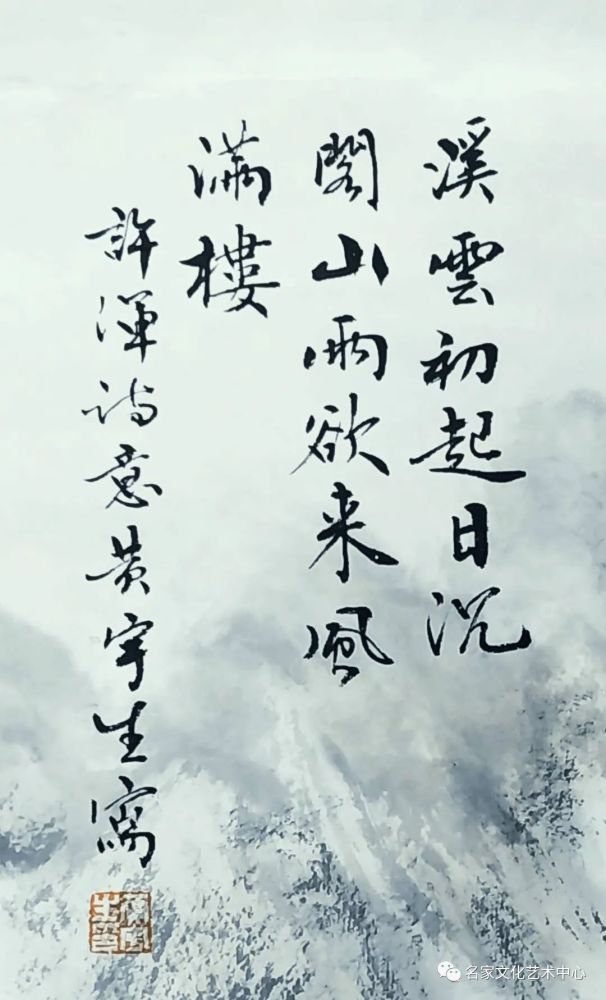 溪雲初起日沉
閣山雨欲来風
滿樓
許渾诗意黄宇生寫
名家文化艺术中心